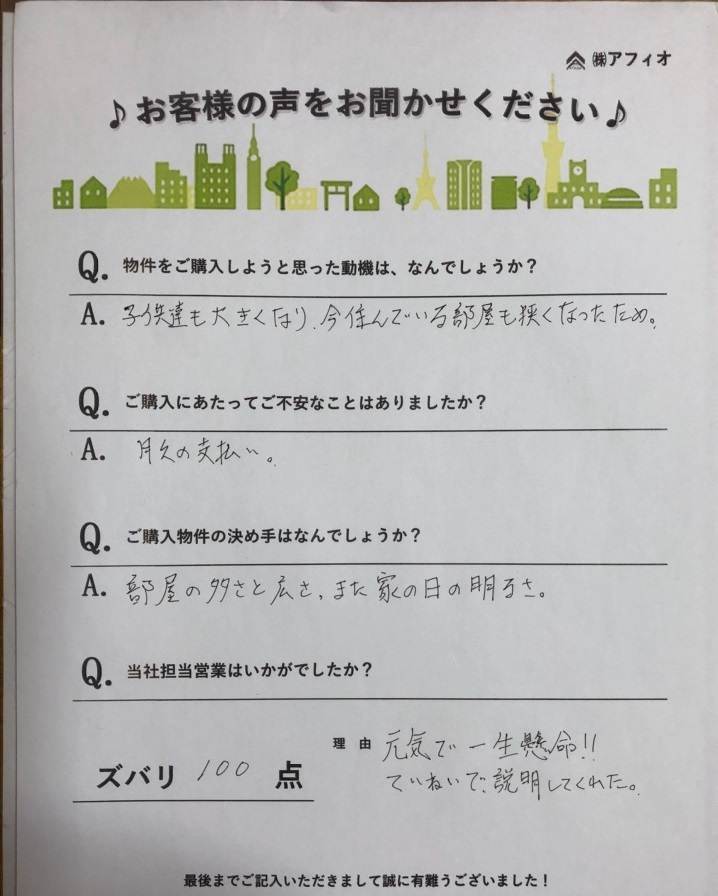 ㈱アフィオ
♪お客様の声をお聞かせください♪
Q. 物件をご購入しようと思った動機は、なんでしょうか？
A. 子供達も大きくなり、今住んでいる部屋も狭くなったため。
Q. ご購入にあたってご不安なことはありましたか？
A. 月々の支払い。
Q. ご購入物件の決め手はなんでしょうか？
A. 部屋の多さと広さ、また家の日の明るさ。
Q. 当社担当営業はいかがでしたか？
ズバリ 100 点
理由 元気で一生懸命!!
ていねいで、説明してくれた。
最後までご記入いただきまして誠に有難うございました！